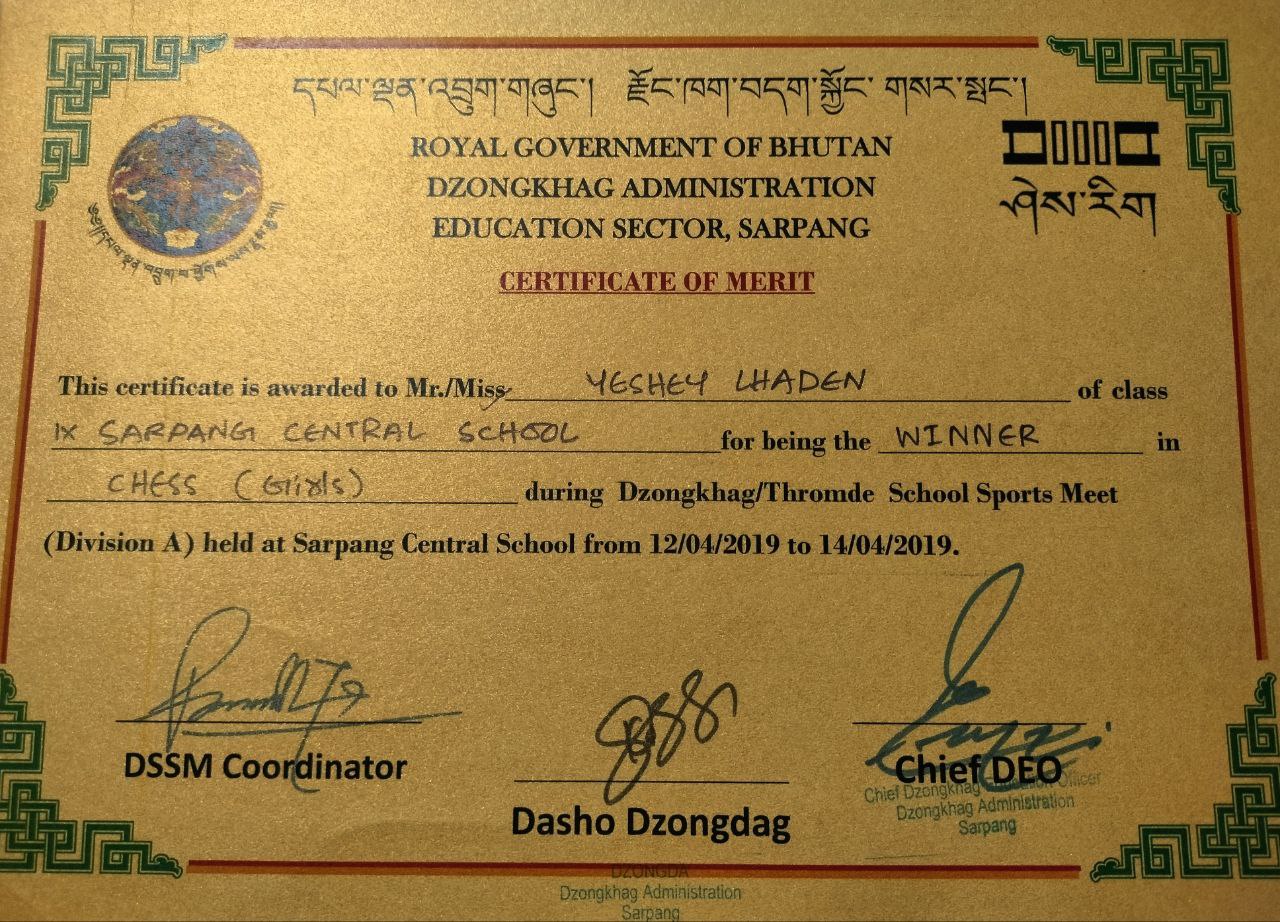 དཔལ་ལྡན་འབྲུག་གཞུང་། རྫོང་ཁག་བདག་སྐྱོང་ གསར་སྤང་།
ROYAL GOVERNMENT OF BHUTAN
DZONGKHAG ADMINISTRATION
EDUCATION SECTOR, SARPANG
ཤེས་རིག
CERTIFICATE OF MERIT
This certificate is awarded to Mr./Miss YESHEY LHADEN of class
IX SARPANG CENTRAL SCHOOL for being the WINNER in
CHESS (Girls) during Dzongkhag/Thromde School Sports Meet
(Division A) held at Sarpang Central School from 12/04/2019 to 14/04/2019.
DSSM Coordinator
Dasho Dzongdag
Chief DEO
Chief Dzongkhag Education Officer
Dzongkhag Administration
Sarpang
DZONGDA
Dzongkhag Administration
Sarpang